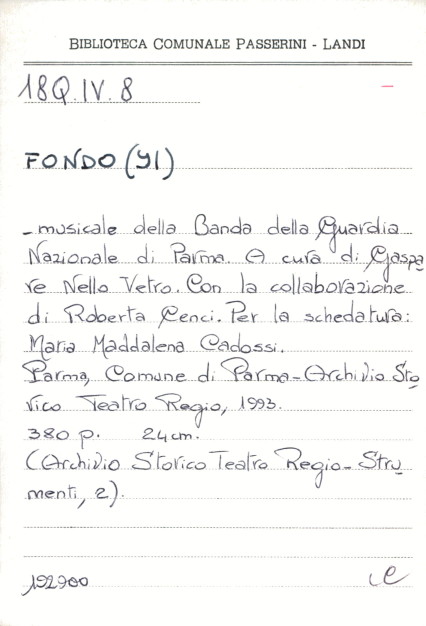 BIBLIOTECA COMUNALE PASSERINI - LANDI
18Q.IV.8
FONDO (91)
- musicale della Banda della Guardia
Nazionale di Parma. A cura di Gaspa
re Nello Vetro. Con la collaborazione
di Roberta Cenci. Per la schedatura:
Maria Maddalena Cadossi.
Parma, Comune di Parma - Archivio Sto
rico Teatro Regio, 1993.
380 p. 24 cm.
(Archivio Storico Teatro Regio - Stru
menti, 2).
192900